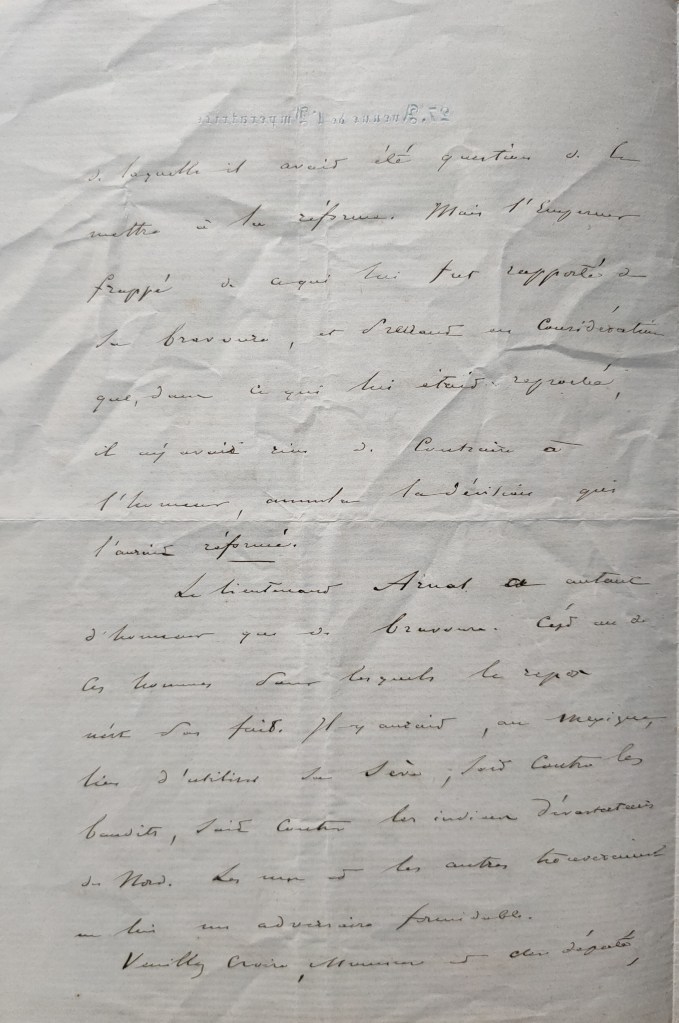 27, Avenue de l'Impératrice
de laquelle il avait été question de le
mettre à la réforme. Mais l'Empereur
frappé de ce qui lui fut rapporté de
sa bravoure, et prenant en considération
que, dans ce qui lui était reproché,
il n'y avait rien de contraire à
l'honneur, annula la décision qui
l'aurait réformé.
Le lieutenant Arnal a autant
d'honneur que de bravoure. C'est un de
ces hommes pour lesquels le repos
n'est pas fait. Il y aurait, au Mexique,
lieu d'utiliser sa sève, soit contre les
bandits, soit contre les indiens dévastateurs
du Nord. Les uns et les autres trouveraient
en lui un adversaire formidable.
Veuillez croire, Monsieur et cher député,